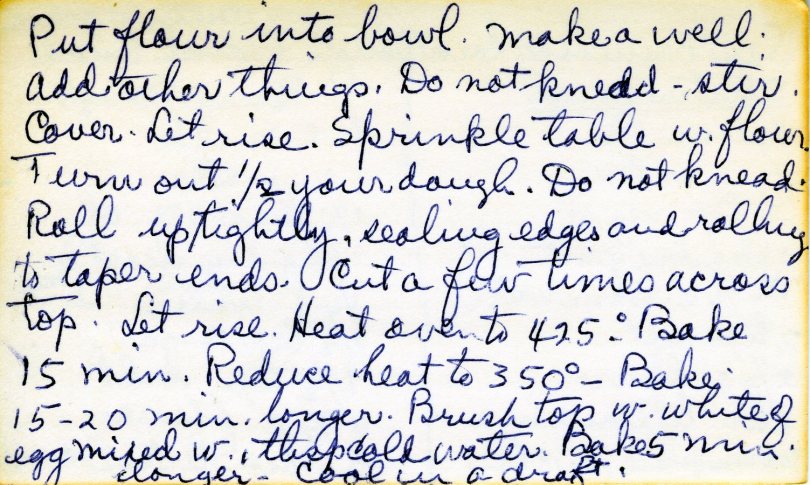 Put flour into bowl. Make a well.
Add other things. Do not knead - stir.
Cover. Let rise. Sprinkle table w. flour.
Turn out 1/2 your dough. Do not knead.
Roll up tightly, sealing edges and rolling
to taper ends. Cut a few times across
top. Let rise. Heat oven to 425°. Bake
15 min. Reduce heat to 350° - Bake
15-20 min. longer. Brush top w. white of
egg mixed w. 1 tbsp cold water. Bake 5 min.
longer - Cool in a draft.